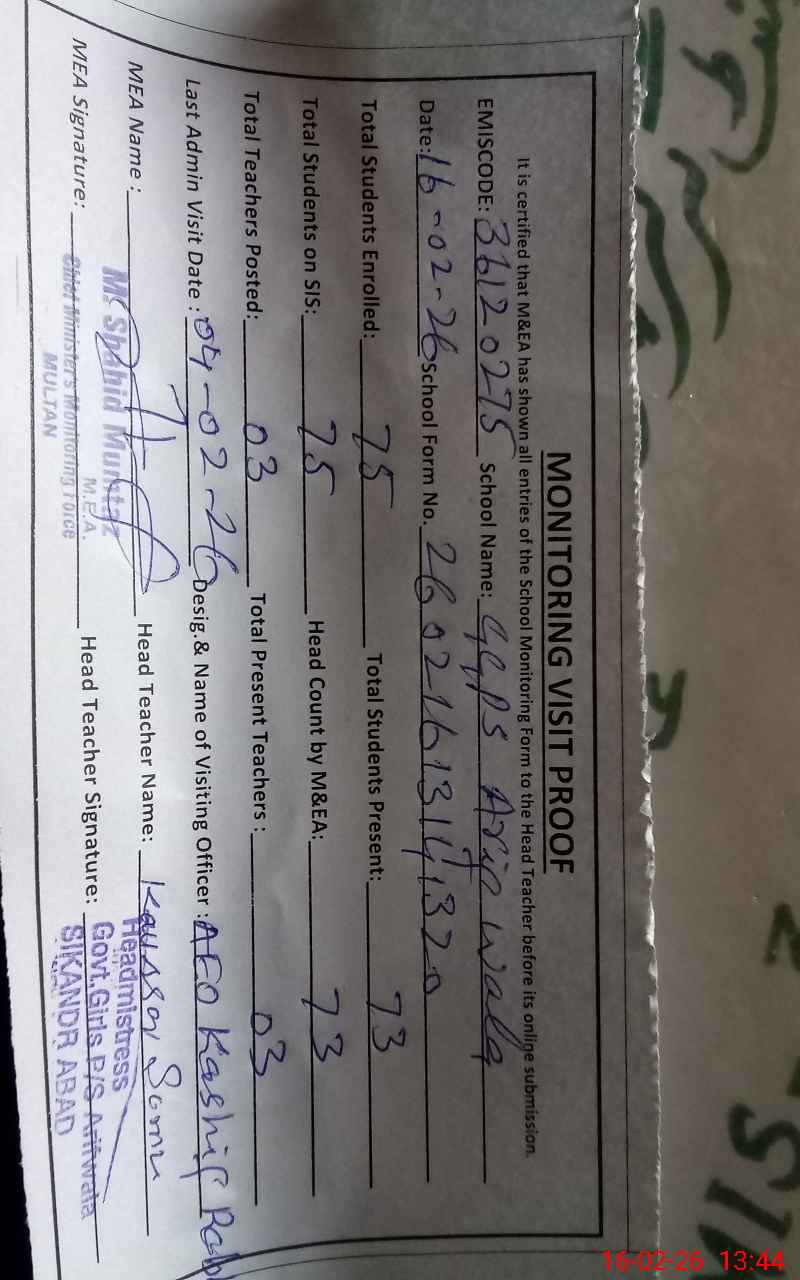 MONITORING VISIT PROOF
It is certified that M&EA has shown all entries of the School Monitoring Form to the Head Teacher before its online submission.
EMISCODE: 36120275 School Name: GGPS Arif wala
Date: 16-02-26 School Form No. 26021613141320
Total Students Enrolled: 75 Total Students Present: 73
Total Students on SIS: 75 Head Count by M&EA: 73
Total Teachers Posted: 03 Total Present Teachers: 03
Last Admin Visit Date: 04-02-26 Desig.& Name of Visiting Officer: AEO Kashif
MEA Name: M. Shahid Mumtaz Head Teacher Name: Kaussar
M.E.A.
MEA Signature: Head Teacher Signature:
Chief Minister's Monitoring Force
MULTAN
Headmistress
Govt.Girls P/S Arifwala
SIKANDR ABAD
16-02-26 13:44